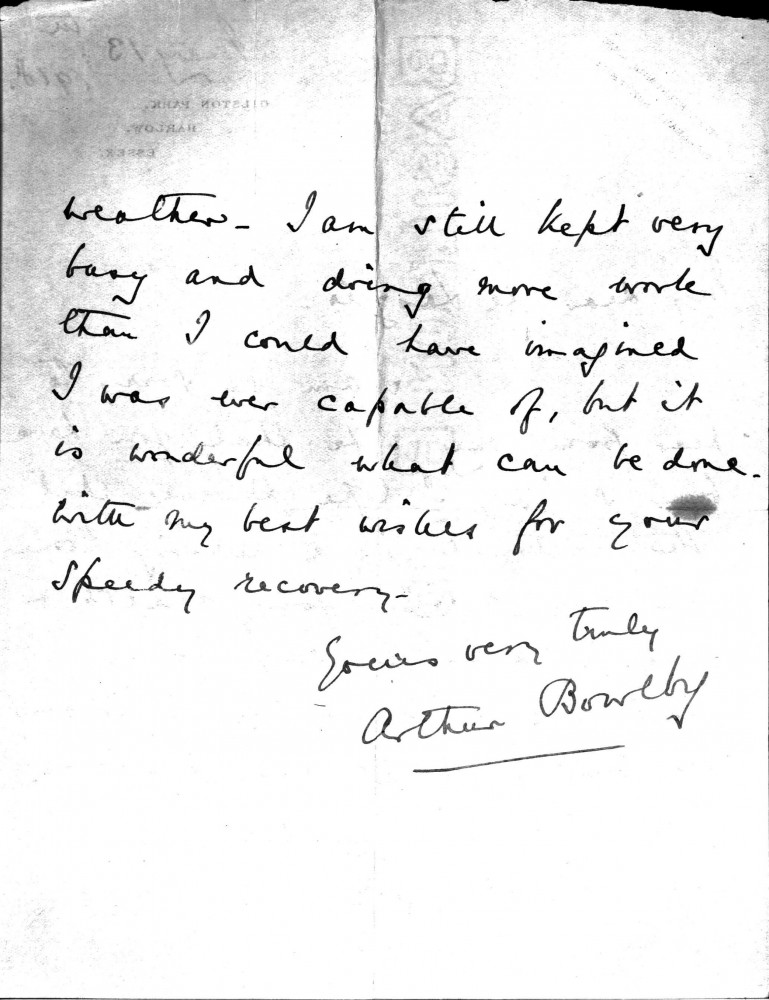 GILSTON PARK,
HARLOW,
ESSEX.
weather - I am still kept very
busy and doing more work
than I could have imagined
I was ever capable of, but it
is wonderful what can be done.
with my best wishes for your
speedy recovery -
Yours very truly
Arthur Bowlby